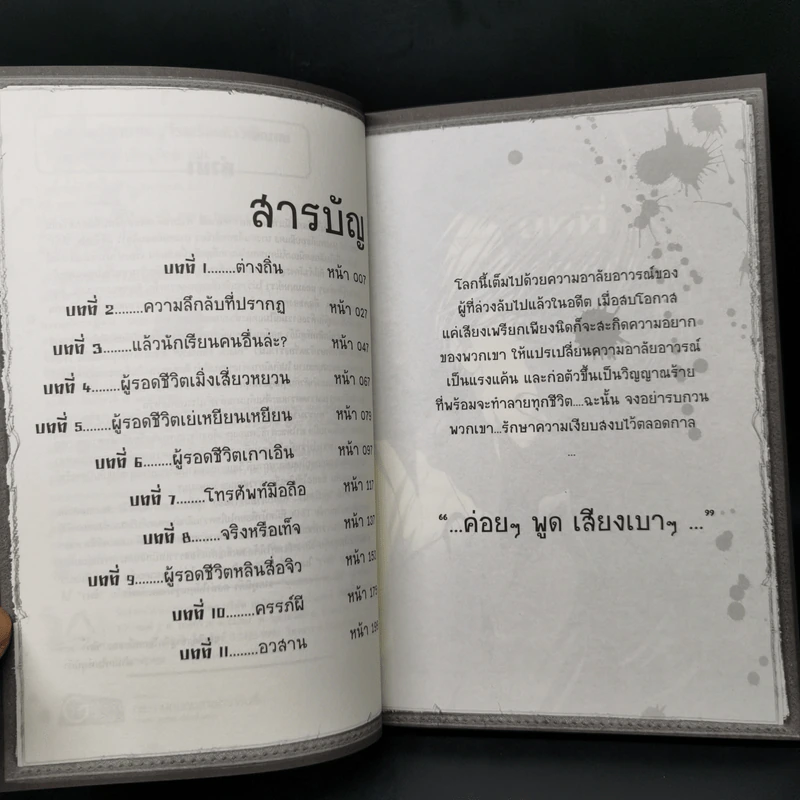 สารบัญ
บทที่ 1........ต่างถิ่น หน้า 007
บทที่ 2........ความลึกลับที่ปรากฏ หน้า 027
บทที่ 3........แล้วนักเรียนคนอื่นล่ะ? หน้า 047
บทที่ 4........ผู้รอดชีวิตเมิ่งเสี่ยวหยวน หน้า 067
บทที่ 5........ผู้รอดชีวิตเย่เหยียนเหยียน หน้า 079
บทที่ 6........ผู้รอดชีวิตเกาเอิน หน้า 097
บทที่ 7........โทรศัพท์มือถือ หน้า 117
บทที่ 8........จริงหรือเท็จ หน้า 137
บทที่ 9........ผู้รอดชีวิตหลินสื่อจิว หน้า
บทที่ 10........ครรภ์ผี หน้า
บทที่ 11........อวสาน หน้า
โลกนี้เต็มไปด้วยความอาลัยอาวรณ์ของ
ผู้ที่ล่วงลับไปแล้วในอดีต เมื่อสบโอกาส
แค่เสียงเพรียกเพียงนิดก็จะสะกิดความอยาก
ของพวกเขา ให้แปรเปลี่ยนความอาลัยอาวรณ์
เป็นแรงแค้น และก่อตัวขึ้นเป็นวิญญาณร้าย
ที่พร้อมจะทำลายทุกชีวิต....ฉะนั้น จงอย่ารบกวน
พวกเขา...รักษาความเงียบสงบไว้ตลอดกาล
...
“...ค่อยๆ พูด เสียงเบาๆ ...”